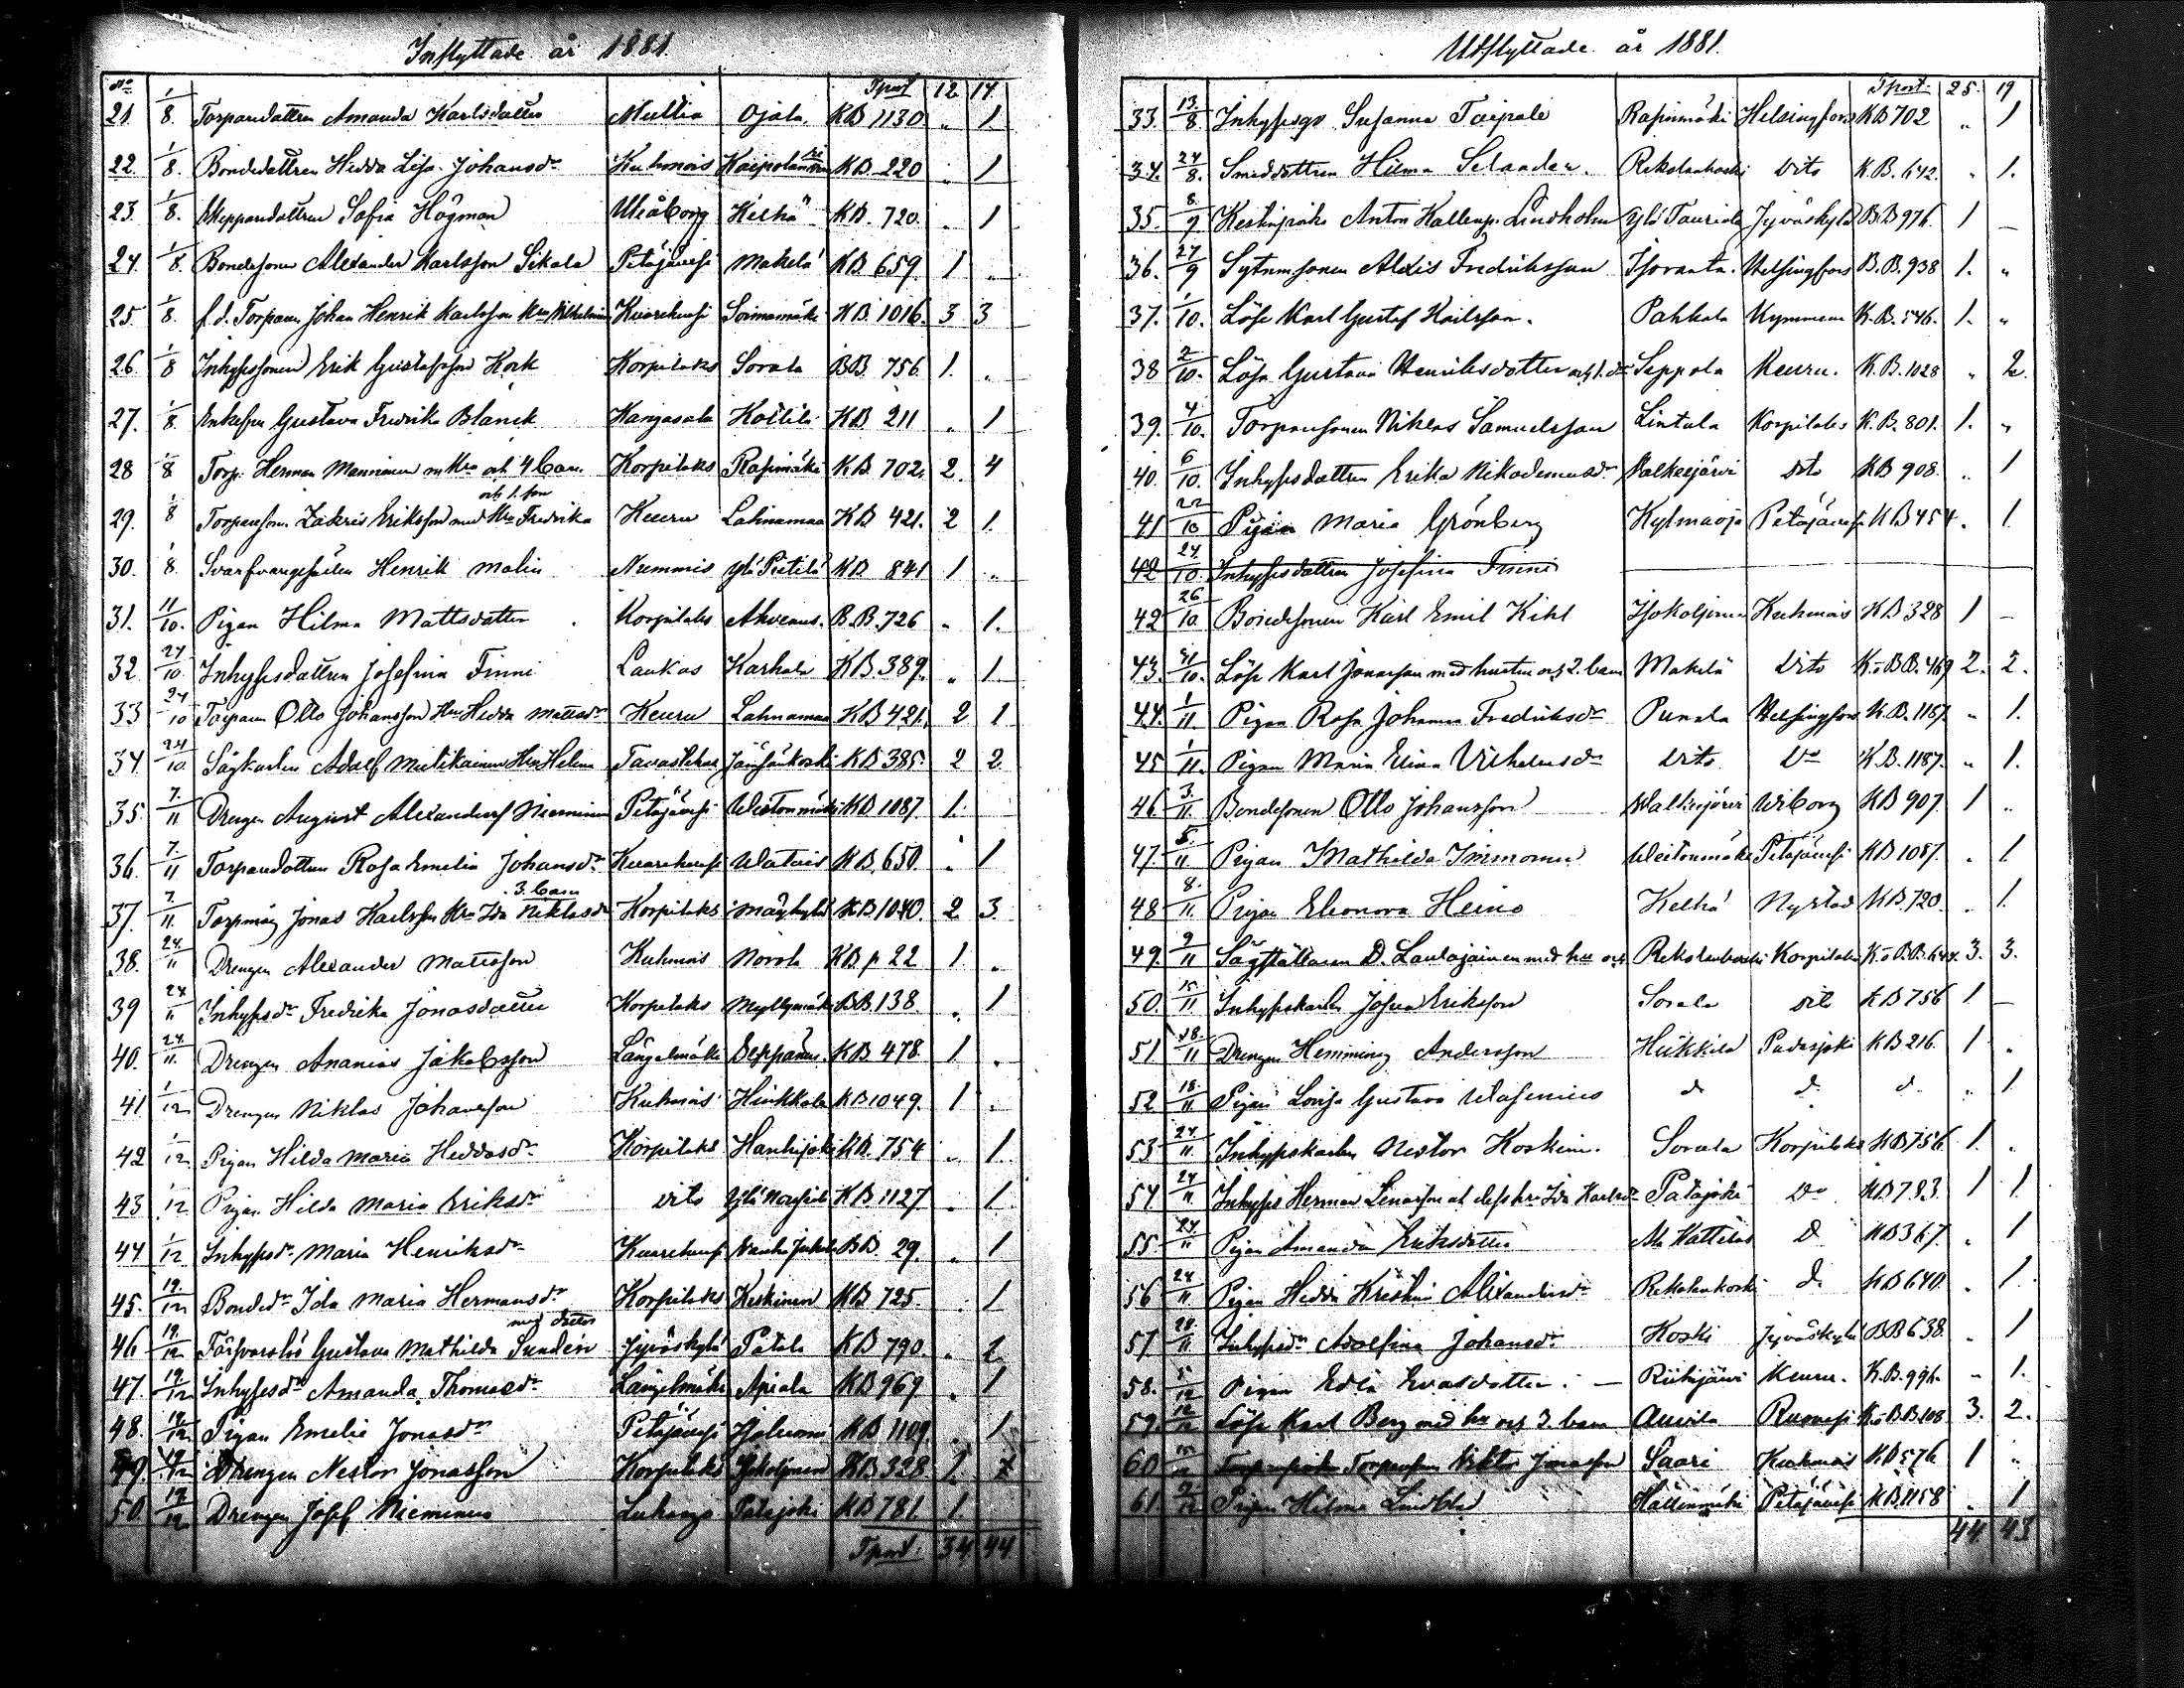 Inflyttade år 1881.
No Tport 12 17.
21. 1/8. Torparedottren Amanda Karlsdotter Multia Ojala. KB 1130 „ 1.
22. 1/8. Bondedottren Hedda Lisa Johansdr Kuhmois KB 220 „ 1
23. 1/8. Skeppardottren Sofia Högman Uleåborg Kelhä KB. 720. „ 1
24. 1/8. Bondesonen Alexander Karlsson Sikala Petäjävesi Mäkelä KB 659 1 „
25. 1/8. f.d. Torparen Johan Henrik Karlsson Hru Vilhelmina Kuorehvesi Soimamäki KB. 1016. 3 3
26. 1/8 Inhysessonen Erik Gustafsson Kork Korpilaks Sorala BB. 756 1. „
27. 1/8. Enkefru Gustava Fredrika Blanck Kangasala Kottila KB 211 „ 1
28 1/8 Torp. Herman Manninen m Hru och 4 barn. Korpilaks Rapinmäki KB. 702. 2. 4
och 1. son
29. 1/8 Torpareson. Zakris Eriksson med Hru Fredrika Keuru Lahnamaa KB 421. 2 1.
30. 1/8. Svarfvaregesällen Henrik Malin Nummis Ylä Pietilä KB 841 1 „
31. 11/10. Pigan Hilma Mattsdotter Korpilaks Ahvenus. B.B. 726 „ 1.
32. 24/10. Inhysesdottren Josefina Finni Laukas Karhala KB 389. „ 1
33 24/10 Torparen Otto Johansson Hru Hedda Mattsdr Keuru Lahnamaa KB 421. 2 1
34. 24/10. Sågkarlen Adolf Mutikainen Hru Helena Tavastehus Jämsänkoski KB 385. 2 2
35. 7./11 Drengen August Alexandersf Nieminen Petäjävesi KB 1087 1.
36. 7./11 Torparedottren Rosa Emelia Johansdr Kuorehvesi KB. 650. „ 1
3. barn
37. 7./11. Jonas Karlsson Hru Ida Niklasdr Korpilaks KB 1040. 2 3.
38. 24./11 Drengen Alexander Mattsson Kuhmois Norola KB p 22 1. „
39 24/11 Inhysesdr Fredrika Jonasdotter Korpilaks Myllymäki BB. 138. „ 1
40. 24./11. Drengen Ananias Jakobsson Längelmäki Seppänen KB 478. 1. „
41 1/12 Drengen Niklas Johansson Kuhmois Hinkkala KB 1049. 1 „
42 1/12. Pigan Hilda Maria Heddasdr Korpilaks KB. 754 „ 1.
43 1/12. Pigan Hilda Maria Eriksdr dito KB. 1127. „ 1
44 1/12 Inhysesdr Maria Henriksdr Kuorehvesi BB. 29. „ 1
45. 19./12 Bondedr Ida Maria Hermansdr Korpilaks Keskinen KB 725. „ 1
med dotter
46 19./12 Försvarslös Gustava Mathilda Sundén Jyväskylä Patala KB 790. „ 2
47. 19./12 Inhysesdr Amanda Thomasdr Längelmäki Apiala KB 969 „ 1
48. 19./12. Pigan Emelie Jonasdr Petäjävesi KB 1109. „ 1
49. 19./12 Drengen Nestor Jonasson Korpilaks KB 328 1.
50. 19./12 Drengen Josef Nieminen Luhango Patajoki KB 781 1.
Tport. 34 44.
Utflyttade år 1881.
Tport. 25. 19
33. 13./8 Inhysesgo Susanna Taipale Rapinmäki Helsingfors KB 702 „ 1
34. 24/8. Smeddottren Hilma Selander. Rekolankoski dito K.B. 642. „ 1.
35. 8./9 Anton Kallenp. Lindholm Ylä Tauriala Jyväskylä B.B 976. 1 –
36. 27/9 Sytnimsonen Alexis Fredriksson Isoranta. Helsingfors B.B. 938 1. „
37. 1/10. Lösk Karl Gustaf Karlsson. Pahkala Kymmene K.B. 546. 1. „
38 2/10. Lösa Gustava Henriksdotter och 1. dr Seppola Keuru. K.B. 1028 „ 2.
39. 4/10. Torparesonen Niklas Samuelsson Lintula Korpilaks K.B. 801. 1. „
40. 6/10. Inhysesdottren Erika Nikodemusdr Valkeejärvi dito KB 908. „ 1
41 22/10 Pigan Maria Grönberg Kylmäoja Petäjävesi KB 454. „ 1.
42 24./10. Inhysesdottren Josefina Finni
42 26/10. Bondesonen Karl Emil Kihl Kuhmois KB 328 1 –
43. 31/10. Lösk Karl Jonasson med hustru och 2. barn Mäkelä dito K. o B.B. 469 2. 2.
44. 1/11. Pigan Rosa Johanna Fredriksdr Punala Helsingfors K.B. 1187. „ 1.
45 1/11. Pigan Maria Elina Vilhelmsdr dito Do K.B. 1187. „ 1.
46. 3./11. Bondesonen Otto Johansson Valkejärvi Wiborg KB 907. 1 „
47. 5./11 Pigan Mathilda Immonen Petäjävesi KB 1087. „ 1.
48 8./11. Pigan Eleonora Heino Kelhä Nystad KB. 720. „ 1.
49. 9/11 Sågställaren D. Lautajainen med hu och Rekolankoski Korpilaks K. o B.B. 644. 3. 3.
50. 15/11. Inhyseskarlen Josua Eriksson Sorala dito KB 756 1 –
51 18./11 Drengen Hemming Andersson Heikkilä Padasjoki KB 216. 1 „
52 18./11 Pigan Lovisa Gustava Wasenius do d. d. „ 1
53 24./11. Inhyseskarlen Nestor Koskin. Sorala Korpilaks KB 756. 1. „
54. 24/11 Inhyses Herman Lenasson och dess hu Ida Karlsdr Patajoki Do KB 783. 1 1.
55. 24./11 Pigan Amanda Eriksdotter Ala Kattilas D KB 367. „ 1
56 24/11 Pigan Hedda Kristina Alexandersdr Rekolankoski d. KB 640. „ 1.
57. 28/11 Inhysesdr Adolfina Johansdr Koski Jyväskylä BB 638. „ 1
58. 5/12 Pigan Edla Evasdotter. – Riihijärvi Keuru. K.B. 996. „ 1.
59. 12/12 Lösk Karl Berg med hu och 3. barn Auvila Ruovesi K. o B.B. 108 3. 2.
60 Torparesonen Viktor Jonasson Saari Kuhmois KB 576 1 „
61. 9/12 Pigan Hilma Lindblad Hallinmäki Petäjävesi KB. 1158 „ 1
44. 43